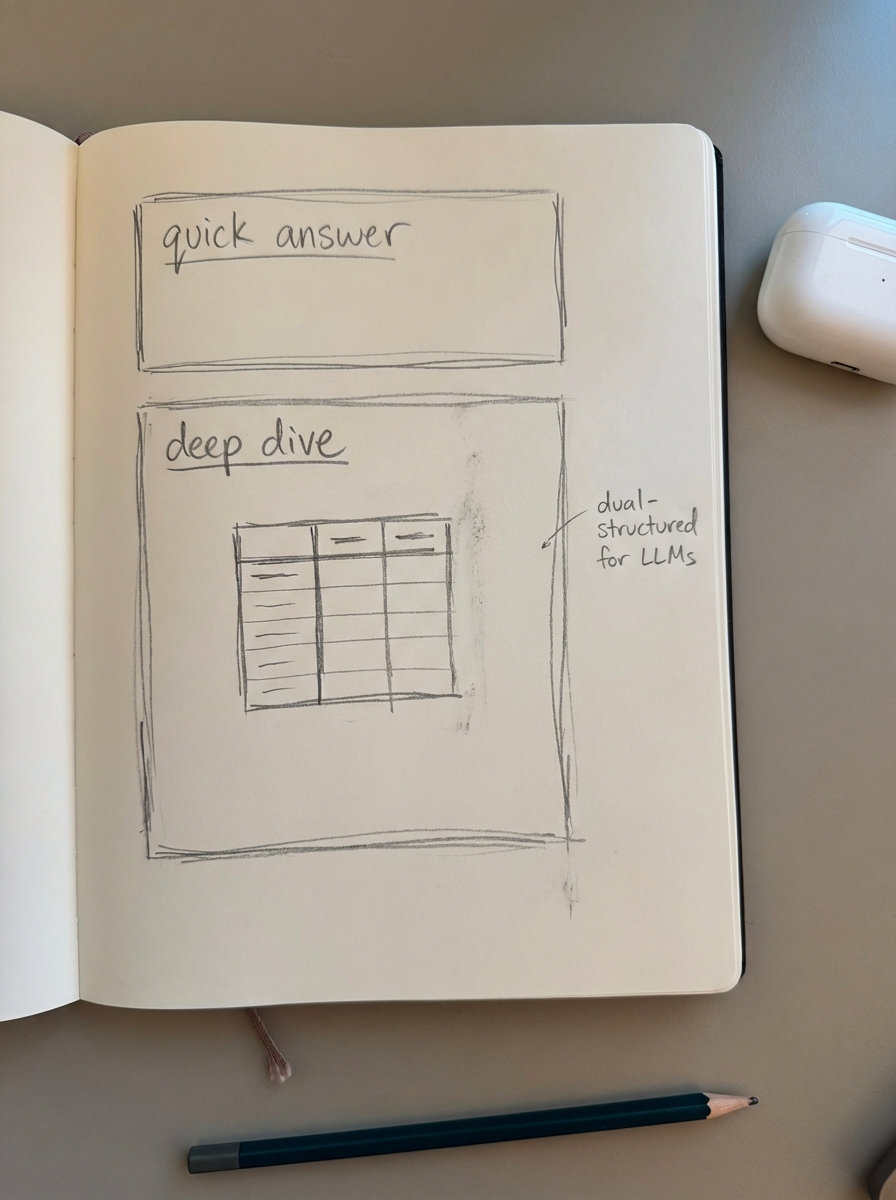 quick answer
deep dive
dual-
structured
for LLMs